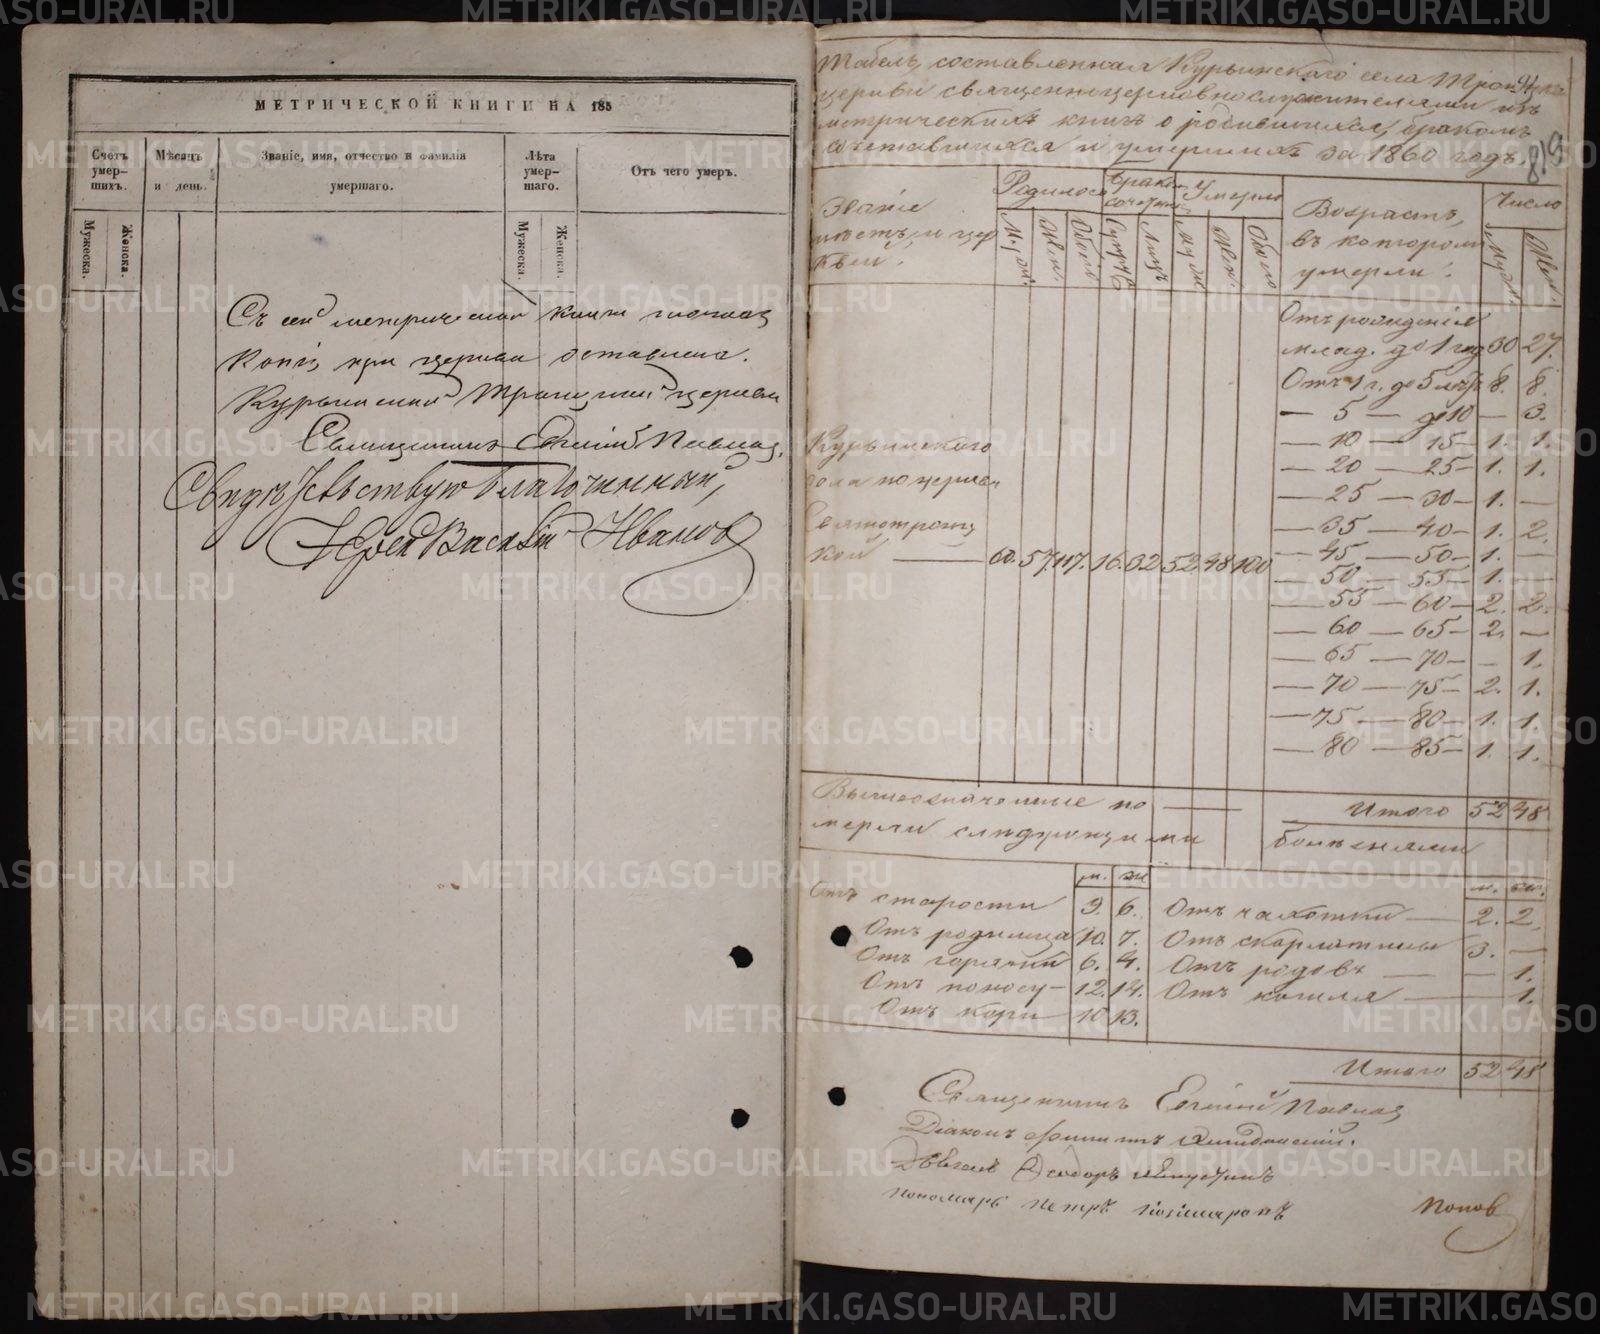 МЕТРИЧЕСКОЙ КНИГИ НА 185
Счетъ умер-шихъ.
Мѣсяцъ и день.
Званіе, имя, отчество и фамилія умершаго.
Лѣта умер-шаго.
Отъ чего умеръ.
Мужеска.
Женска.
Мужеска.
Женска.
Съ сей метрической книги точная
Копія при церкви оставлена.
Курьинской Троицкой церкви
Священникъ Евгеній
Свидѣтельствую Благочинный,
Іерей Василій Ивановъ
Табель, составленная Курьинскаго села Троицкой
церкви священноцерковнослужителями изъ
метрическихъ книгъ о родившихся, бракомъ
сочетавшихся и умершихъ за 1860 годъ.
Званіе мѣстъ и церквей.
Родилось
Бракомъ сочет.
Умерло
Возрастъ, въ которомъ умерли.
Число
Муж. Жен. Обоего
Лицъ
Муж. Жен. Обоего
Муж. Жен.
Отъ рожденія
млад. до 1 год 30 27.
Отъ 1 г. до 5 лѣтъ 8. 8.
— 5 — до 10 — 3.
— 10 — 15 — 1. 1.
— 20 — 25 — 1. 1.
— 25 — 30 — 1. —
— 35 — 40 — 1. 2.
— 45 — 50 — 1. —
— 50 — 55 — 1. —
— 55 — 60 — 2. 2.
— 60 — 65 — 2. —
— 65 — 70 — - 1.
— 70 — 75 — 2. 1.
— 75 — 80 — 1. 1.
— 80 — 85 — 1. 1.
Курьинскаго
села по церкви
Святотроиц
кой — 60. 57. 117. 16. 32 52 48 100
Итого 52 48
Вышеозначенные по —
мерли слѣдующими болѣзнями
м. ж.
м. ж.
Отъ старости 3. 6. Отъ чахотки — 2. 2.
Отъ родимца 10. 7. Отъ скарлатины 3. —
Отъ горячки 6. 4. Отъ родовъ — — 1.
Отъ поносу — 12. 14. Отъ кашля — 1.
Отъ кори 13.
Итого 52 48
Священникъ Евгеній
Діаконъ
Дьячекъ Ѳеодоръ
пономарь Петръ
Поповъ
METRIKI.GASO-URAL.RU